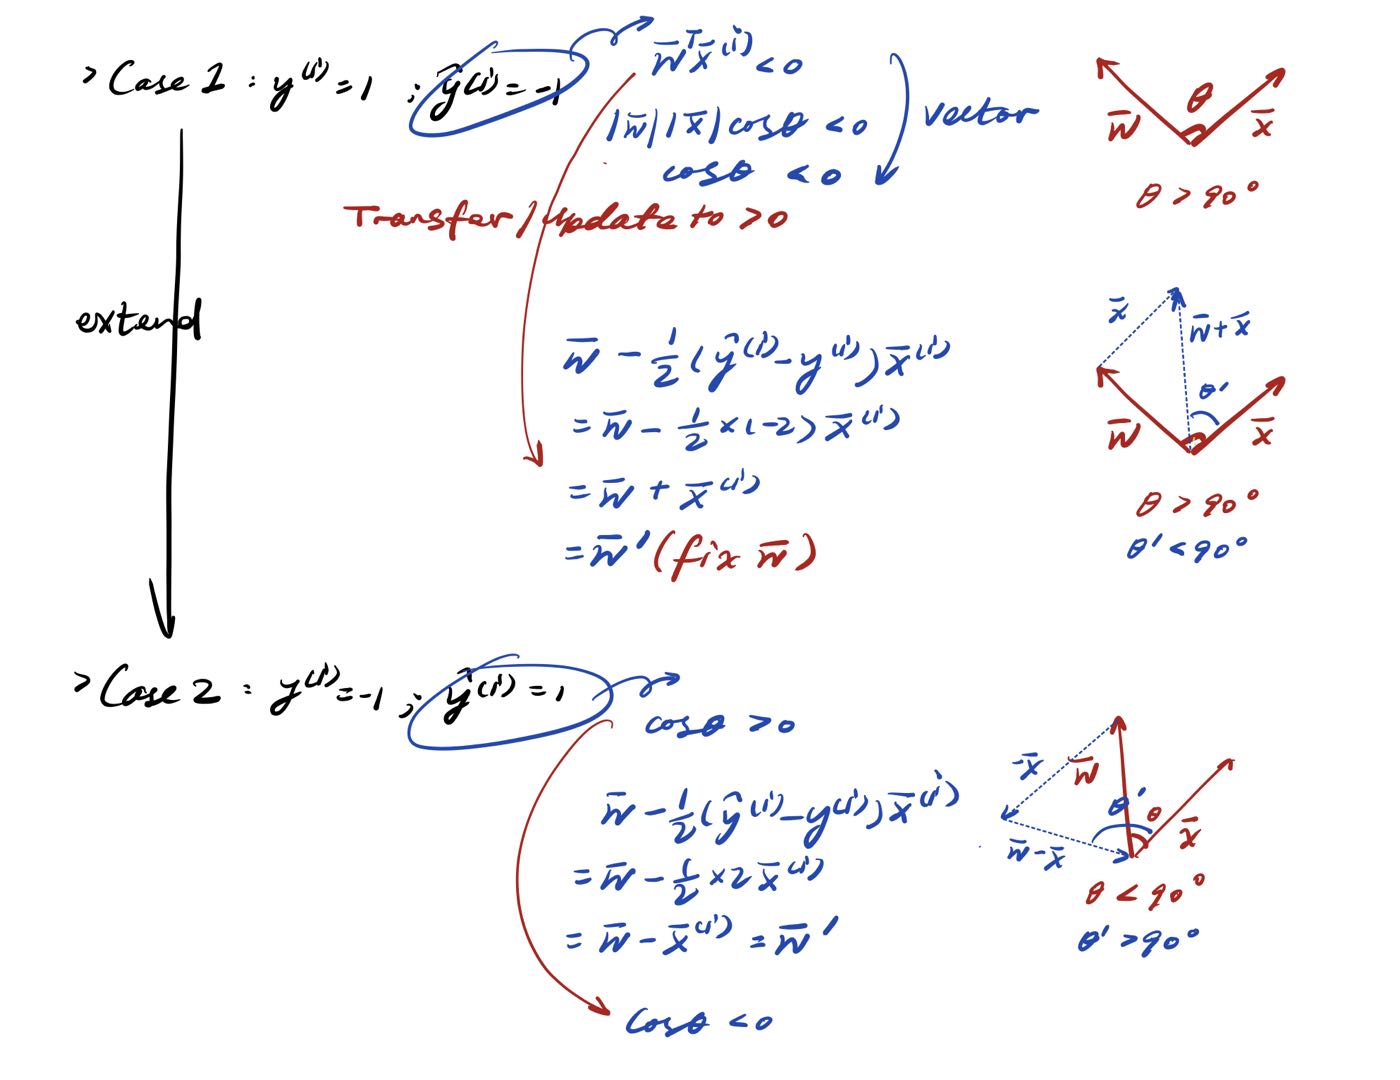 > Case 1 : y^(i) = 1 ; ŷ^(i) = -1
w̄ᵀx̄^(i) < 0
|w̄||x̄| cosθ < 0
cosθ < 0
vector
Transfer / update to > 0
w̄
θ
x̄
θ > 90°
extend
w̄ - 1/2 (ŷ^(i) - y^(i)) x̄^(i)
= w̄ - 1/2 × (-2) x̄^(i)
= w̄ + x̄^(i)
= w̄' (fix w̄)
x̄
w̄ + x̄
θ'
w̄
x̄
θ > 90°
θ' < 90°
> Case 2 : y^(i) = -1 ; ŷ^(i) = 1
cosθ > 0
w̄ - 1/2 (ŷ^(i) - y^(i)) x̄^(i)
= w̄ - 1/2 × 2 x̄^(i)
= w̄ - x̄^(i) = w̄'
cosθ < 0
-x̄
w̄
θ'
θ
x̄
w̄ - x̄
θ < 90°
θ' > 90°